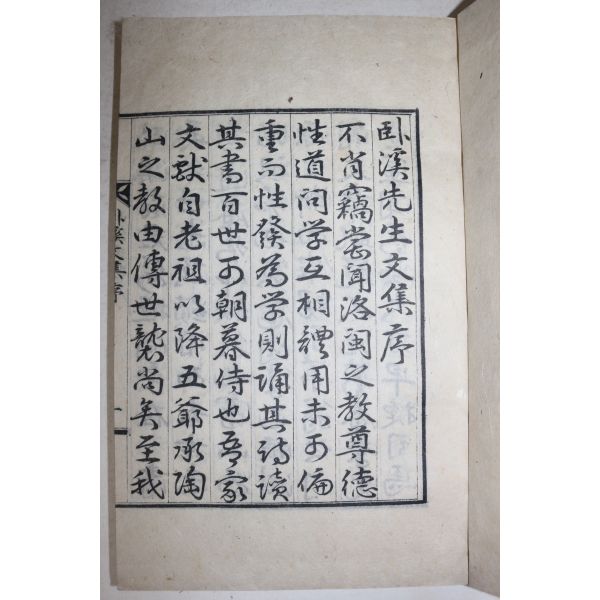 卧溪先生文集序
不肖竊嘗聞洛閩之教尊德
性道問学互相體用未可偏
重而性發為学則誦其詩讀
其書百世可朝暮侍也吾家
文獻自老祖以降五爺承陶
山之教由傳世襲尚矣至我
卧溪文集序